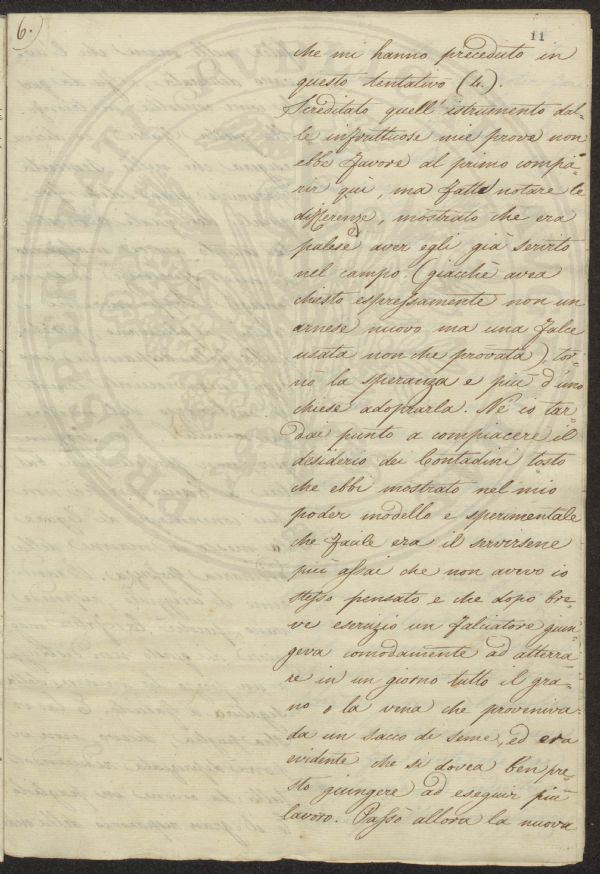 6.)
11
che mi hanno preceduto in
questo tentativo (4.).
Screditato quell' istrumento dal=
le infruttuose mie prove non
ebbe favore al primo compa=
rir quì, ma fatte notare le
differenze, mostrato che era
palese aver egli già servito
nel campo (giacchè avea
chiesto espressamente non un
arnese nuovo ma una falce
usata non che provata), tor=
nò la speranza e più d'uno
chiese adoprarla. Nè io tar=
dai punto a compiacere il
desiderio dei Contadini tosto
che ebbi mostrato nel mio
poder modello e sperimentale
che facile era il servirsene
più assai che non avevo io
stesso pensato e che dopo bre=
ve esercizio un falciatore giun=
geva comodamente ad atterra=
re in un giorno tutto il gra=
no o la vena che proveniva
da un sacco di seme, ed era
evidente che si dovea ben pre=
sto giungere ad eseguir più
lavoro. Passò allora la nuova
PROSPERITATI